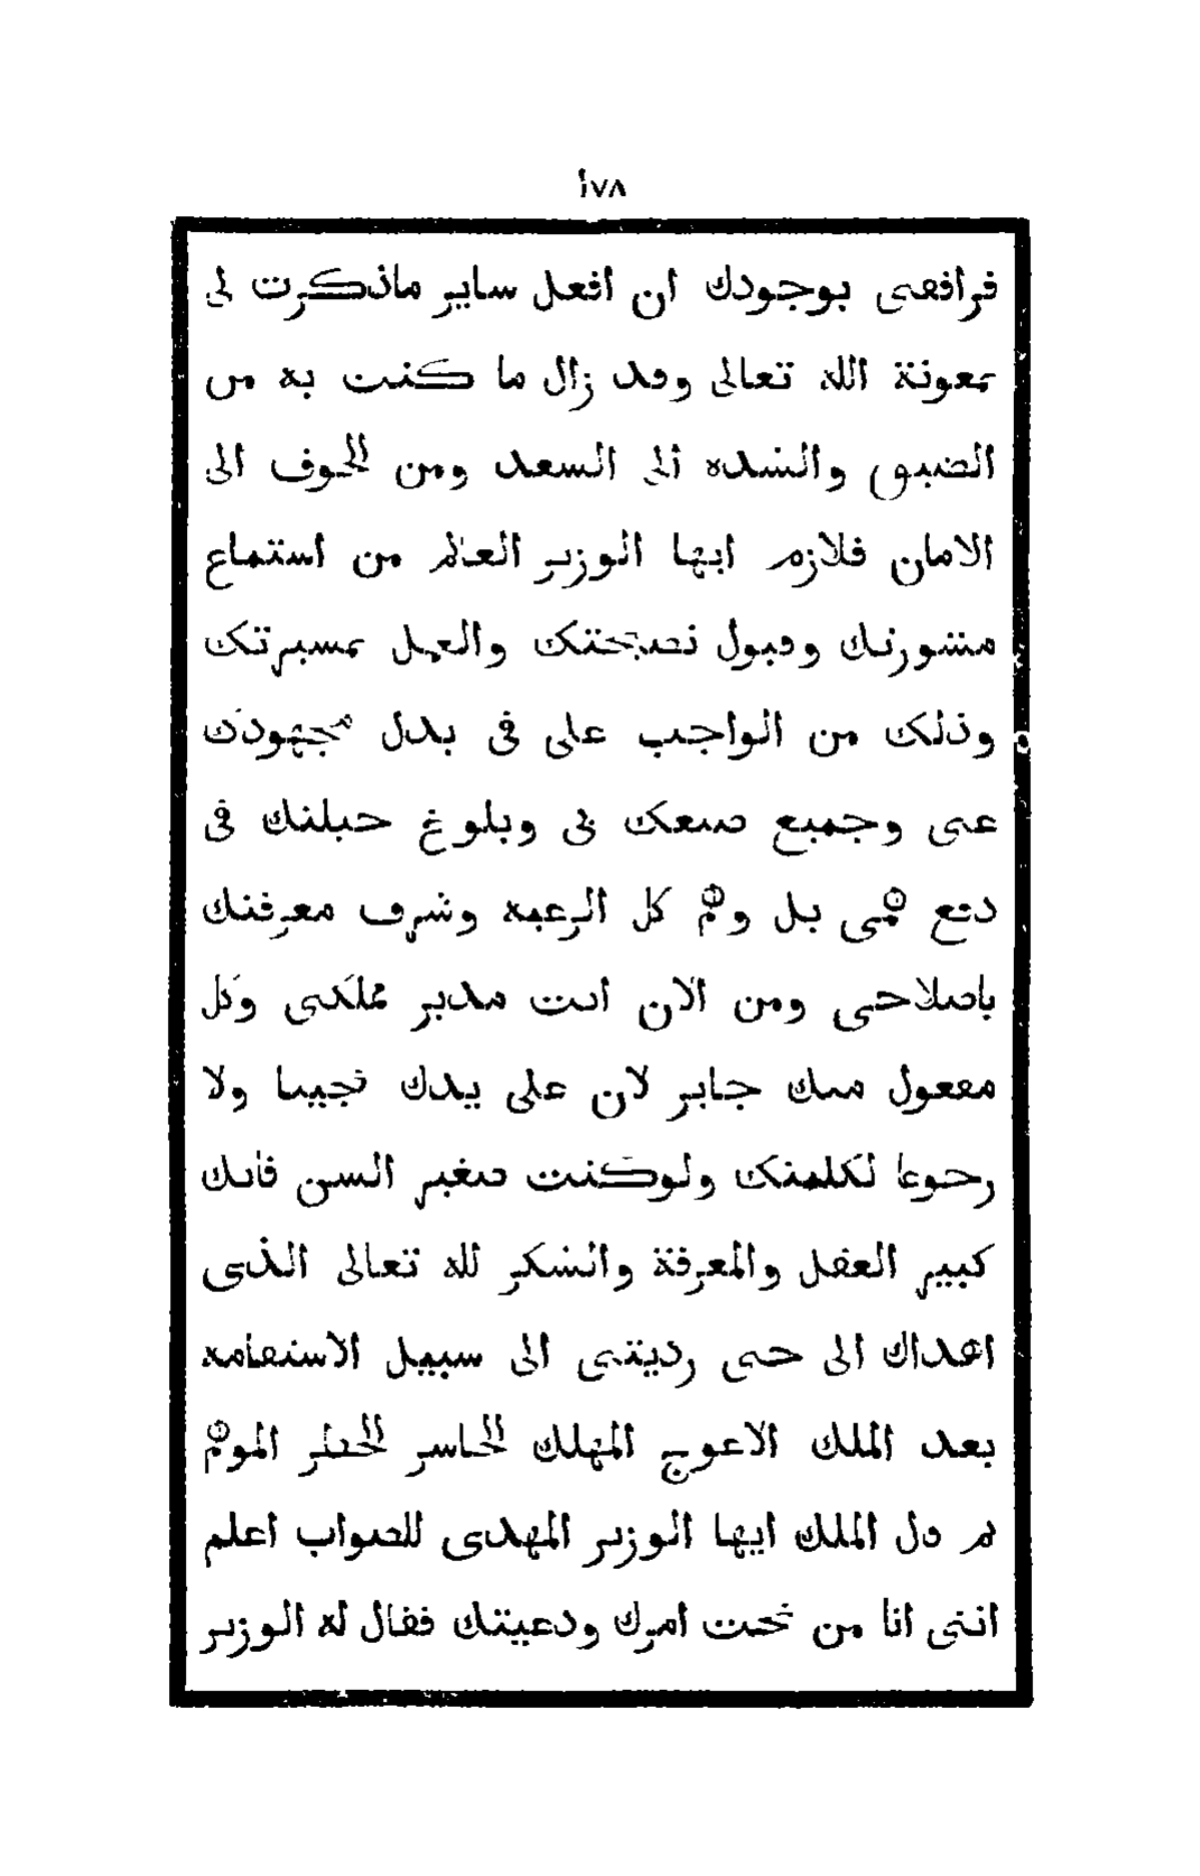 ١٧٨
فرافقنى بوجودك ان افعل ساير ماذكرت لى
بمعونة الله تعالى وقد زال ما كنت به من
الضيق والشده الى السعد ومن الخوف الى
الامان فلازم ايها الوزير العالم من استماع
مشورتك وقبول نصيحتك والعمل بمسيرتك
وذلك من الواجب على فى بدل مجهودك
عنى وجميع صنعك بى وبلوغ حيلتك فى
دفع همى بل وهم كل الرعيه وشرف معرفتك
باصلاحى ومن الان انت مدبر مملكتى وكل
مفعول منك جايز لان على يدك نجينا ولا
رجوعا لكلمتك ولوكنت صغير السن فانك
كبير العقل والمعرفة والشكر لله تعالى الذى
اهداك الى حتى رديتنى الى سبيل الاستقامه
بعد الملك الاعوج المهلك الخاسر الخطر
ثم قال الملك ايها الوزير المهدى للصواب اعلم
اننى انا من تحت امرك ودعيتك فقال له الوزير